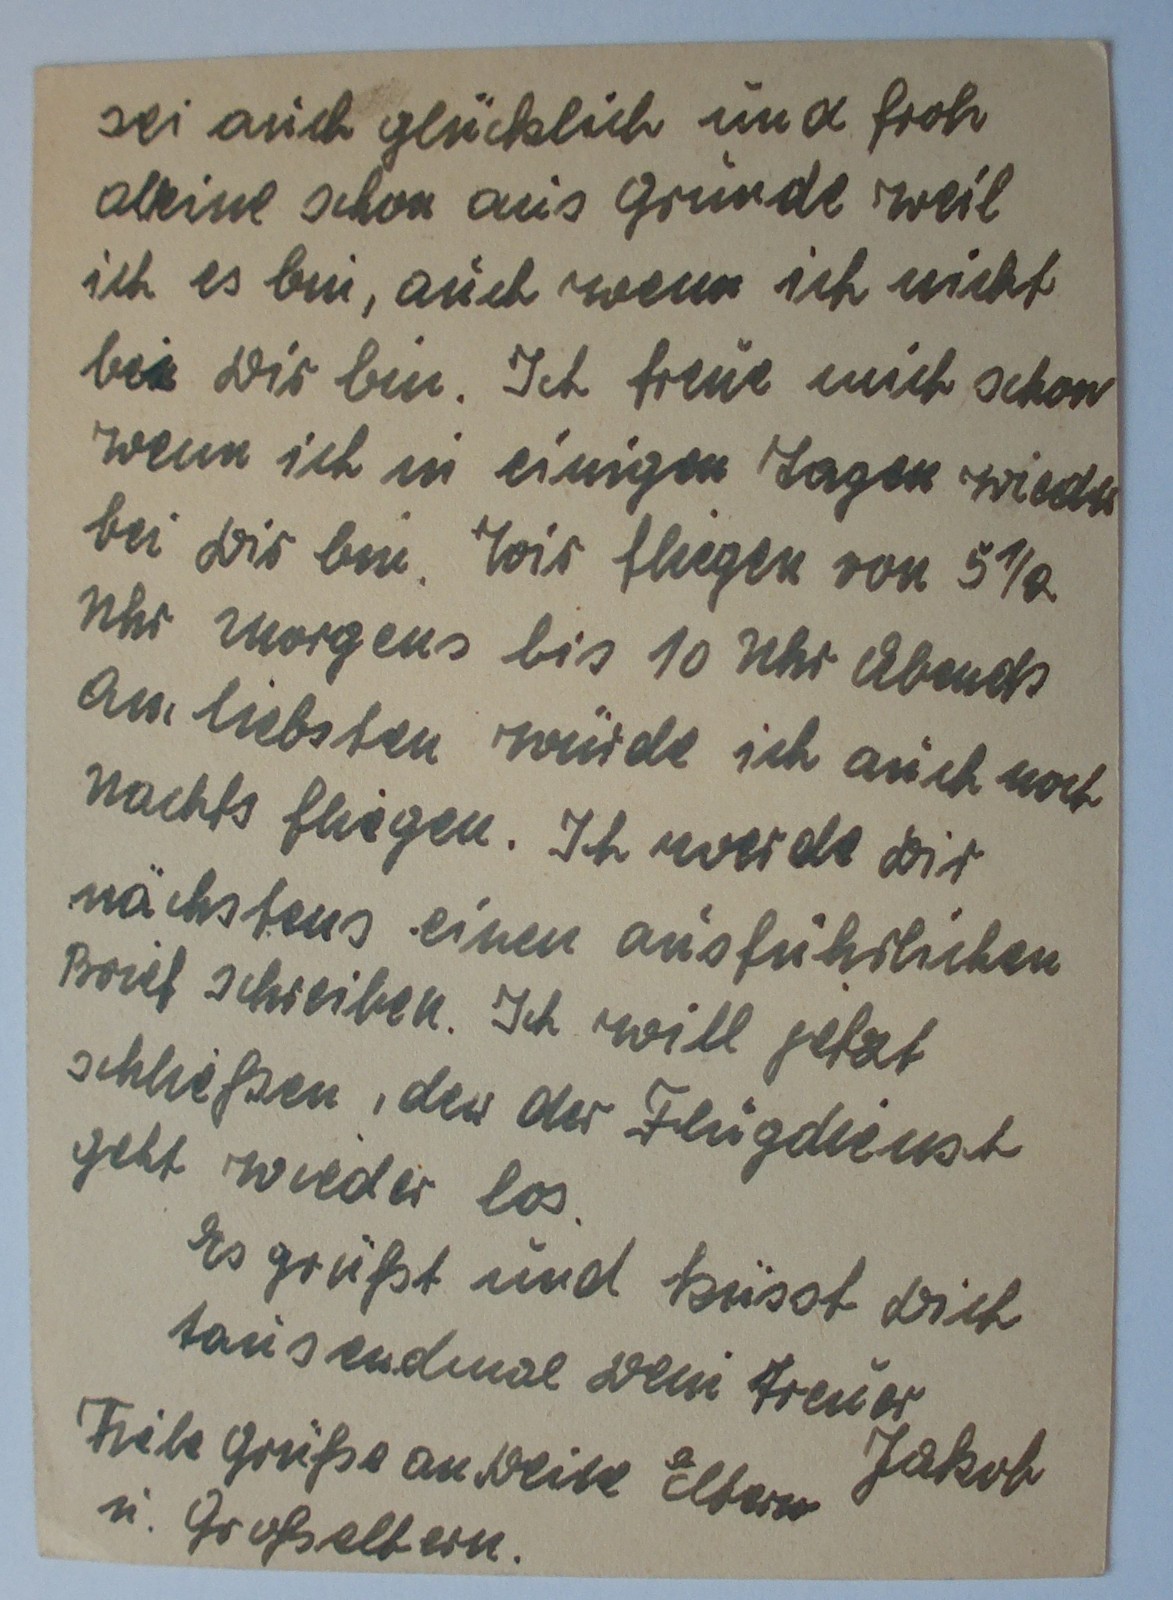 sei auch glücklich und froh
aleine schon aus Grunde weil
ich es bin, auch wenn ich nicht
bei Dir bin. Ich freue mich schon
wenn ich in einigen Tagen wieder
bei Dir bin. Wir fliegen von 5 1/2
Uhr morgens bis 10 Uhr Abends
Am liebsten würde ich auch noch
Nachts fliegen. Ich werde Dir
nächstens einen ausführlichen
Brief schreiben. Ich will jetzt
schließen, den der Flugdienst
geht wieder los.
Es grüßt und küsst Dich
tausendmal Dein treuer
Jakob
Fiele Grüße an Deine Eltern
u. Großeltern.